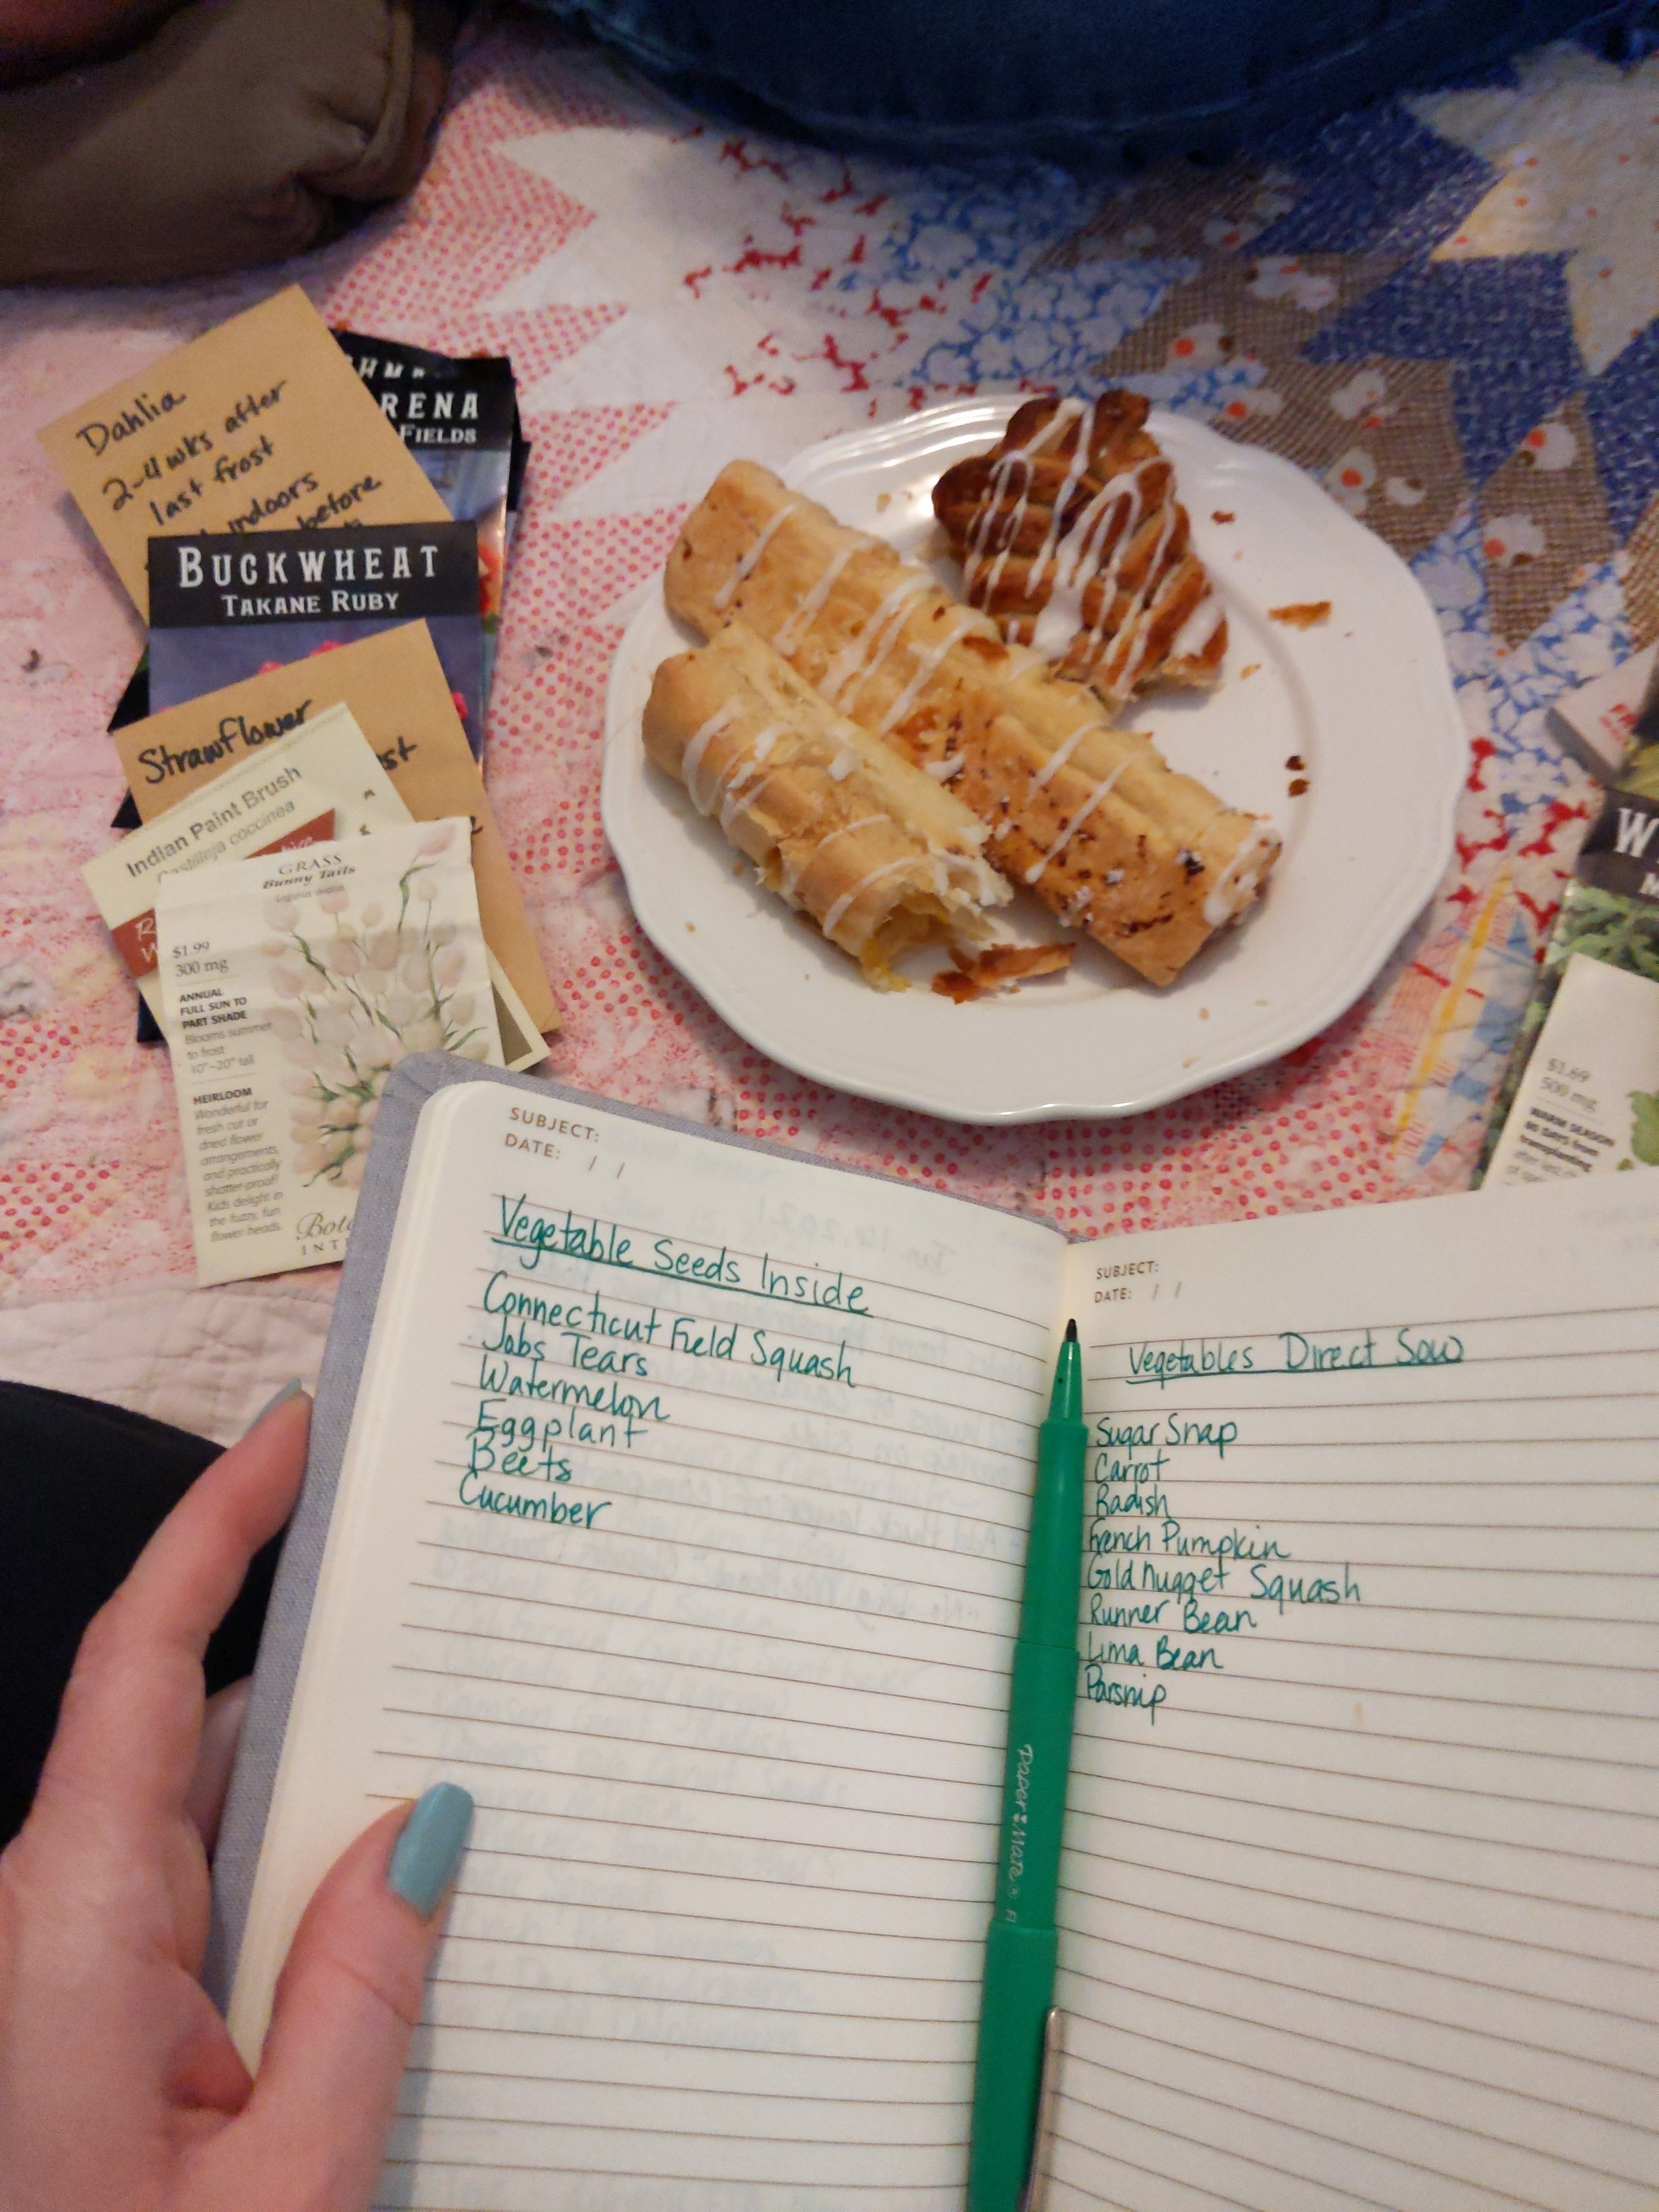 Dahlia
2-4 wks after
last frost
indoors
before
RENA
FIELDS
BUCKWHEAT
TAKANE RUBY
Strawflower
Indian Paint Brush
Castilleja coccinea
GRASS
Bunny Tails
$1.99
300 mg
ANNUAL
FULL SUN TO
PART SHADE
Blooms summer
to frost
10"-20" tall
HEIRLOOM
Wonderful for
fresh cut or
dried flower
arrangements,
and practically
shatter-proof!
Kids delight in
the fuzzy, fun
flower heads.
$1.69
500 mg
WARM SEASON
SUBJECT:
DATE: / /
Vegetable Seeds Inside
Connecticut Field Squash
Jobs Tears
Watermelon
Eggplant
Beets
Cucumber
SUBJECT:
DATE: / /
Vegetables Direct Sow
Sugar Snap
Carrot
Radish
French Pumpkin
Gold Nugget Squash
Runner Bean
Lima Bean
Parsnip
Paper:Mate®